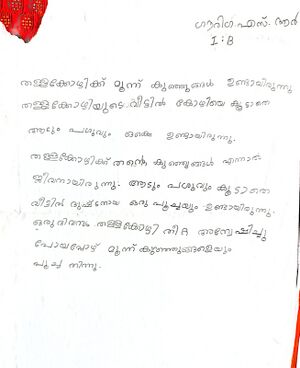 ഗൗരിഗ എസ്. ആർ
I:B
തള്ളക്കോഴിക്ക് മൂന്ന് കുഞ്ഞുങ്ങൾ ഉണ്ടായിരുന്നു
തള്ളക്കോഴിയുടെ വീട്ടിൽ കോഴിയെ കൂടാതെ
ആടും പശുവും ഒക്കെ ഉണ്ടായിരുന്നു.
തള്ളക്കോഴിക്ക് തന്റെ കുഞ്ഞുങ്ങൾ എന്നാൽ
ജീവനായിരുന്നു. ആടും പശുവും കൂടാതെ
വീട്ടിൽ ദുഷ്ടനായ ഒരു പൂച്ചയും ഉണ്ടായിരുന്നു.
ഒരു ദിവസം തള്ളക്കോഴി തീറ്റ അന്വേഷിച്ചു
പോയപ്പോൾ മൂന്ന് കുഞ്ഞുങ്ങളെയും
പൂച്ച തിന്നു.